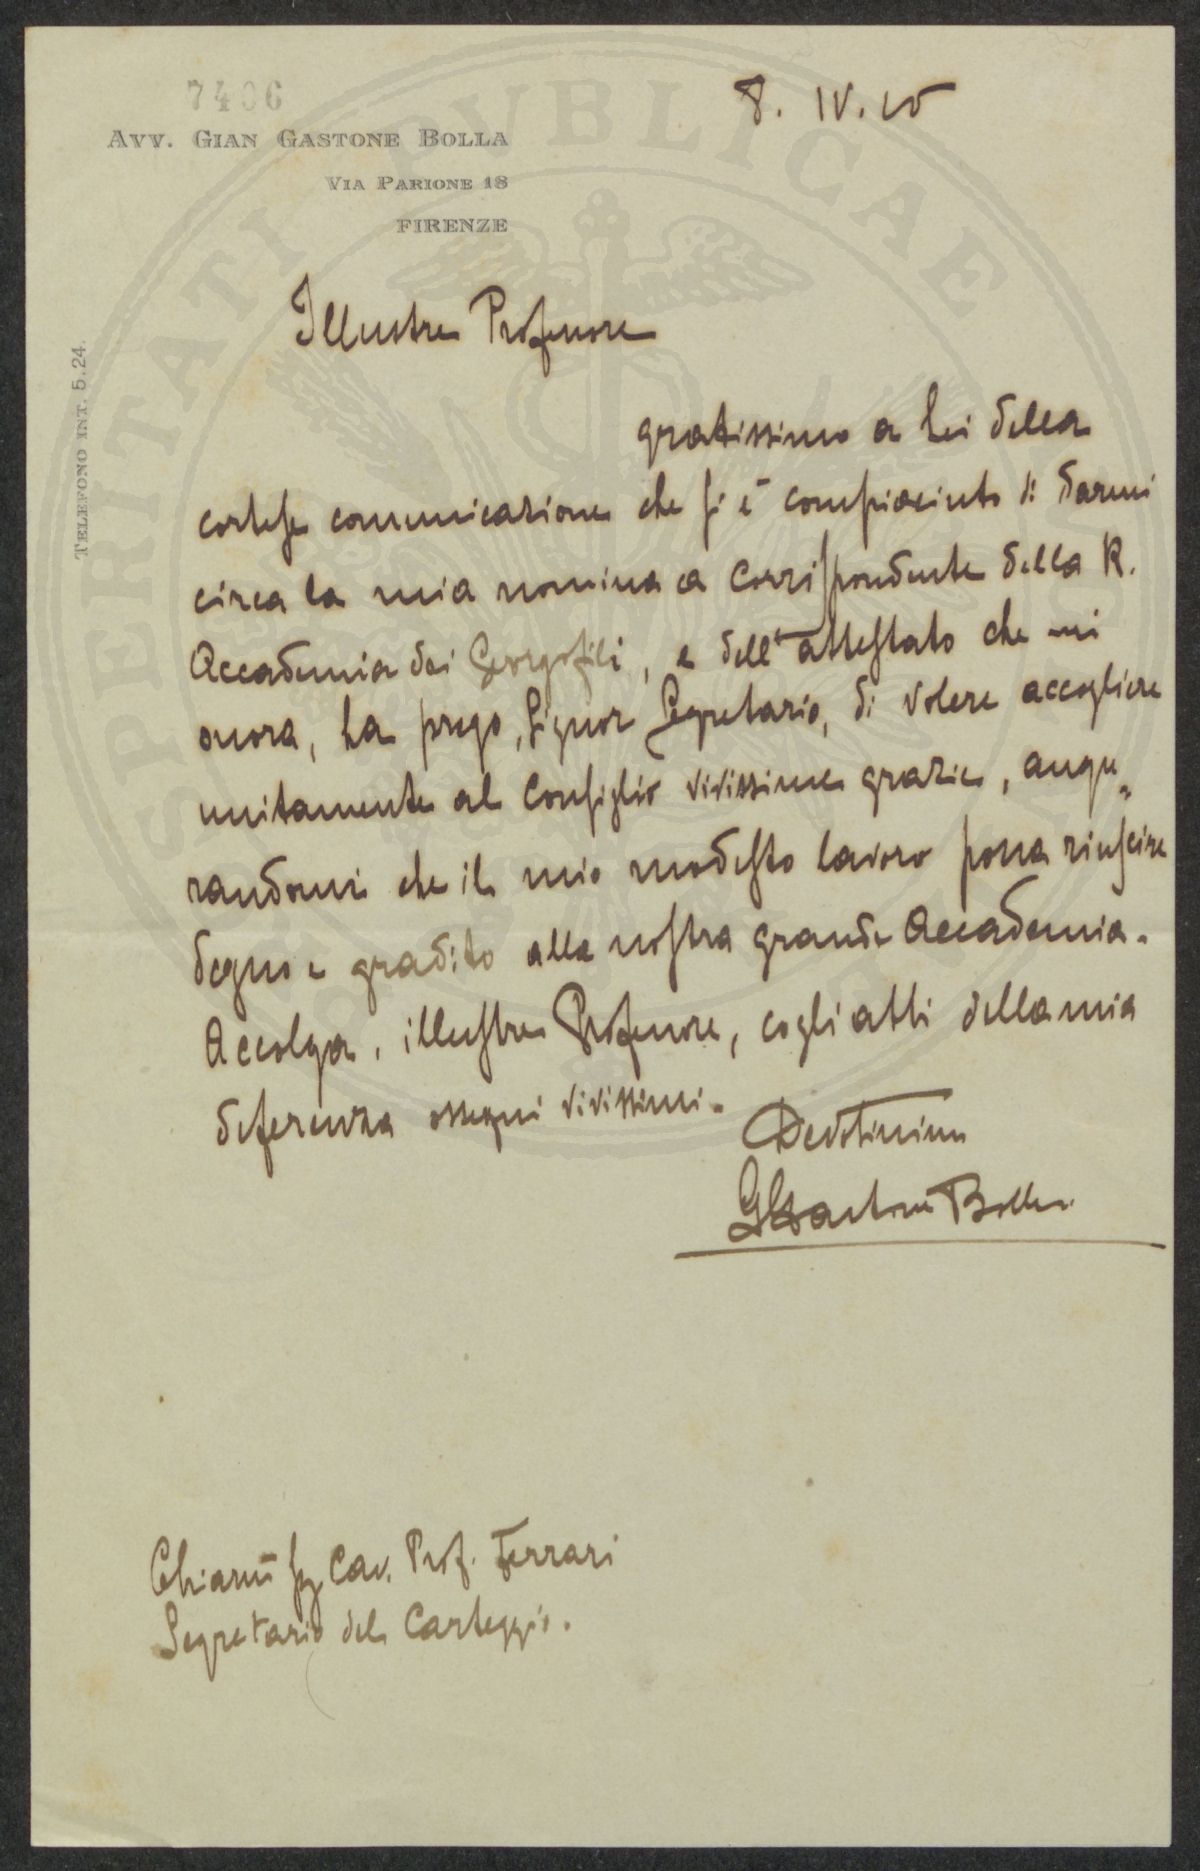 7406
8. IV. 15
AVV. GIAN GASTONE BOLLA
VIA PARIONE 18
FIRENZE
TELEFONO INT. 5.24.
PROSPERITATI PVBLICAE
Illustre Professore
gratissimo a Lei della
cortese comunicazione che si è compiaciuto di darmi
circa la mia nomina a Corrispondente della R.
Accademia dei Georgofili, e dell'attestato che mi
onora, La prego, Signor Segretario, di volere accogliere
unitamente al Consiglio vivissime grazie, augu„
randomi che il mio modesto lavoro possa riuscire
degno e gradito alla nostra grande Accademia.
Accolga, illustre Professore, cogli atti della mia
deferenza ossequi vivissimi.
Devotissimo
GGastone Bolla
Chiarm̄ Sg Cav. Prof. Ferrari
Segretario del Carteggio.